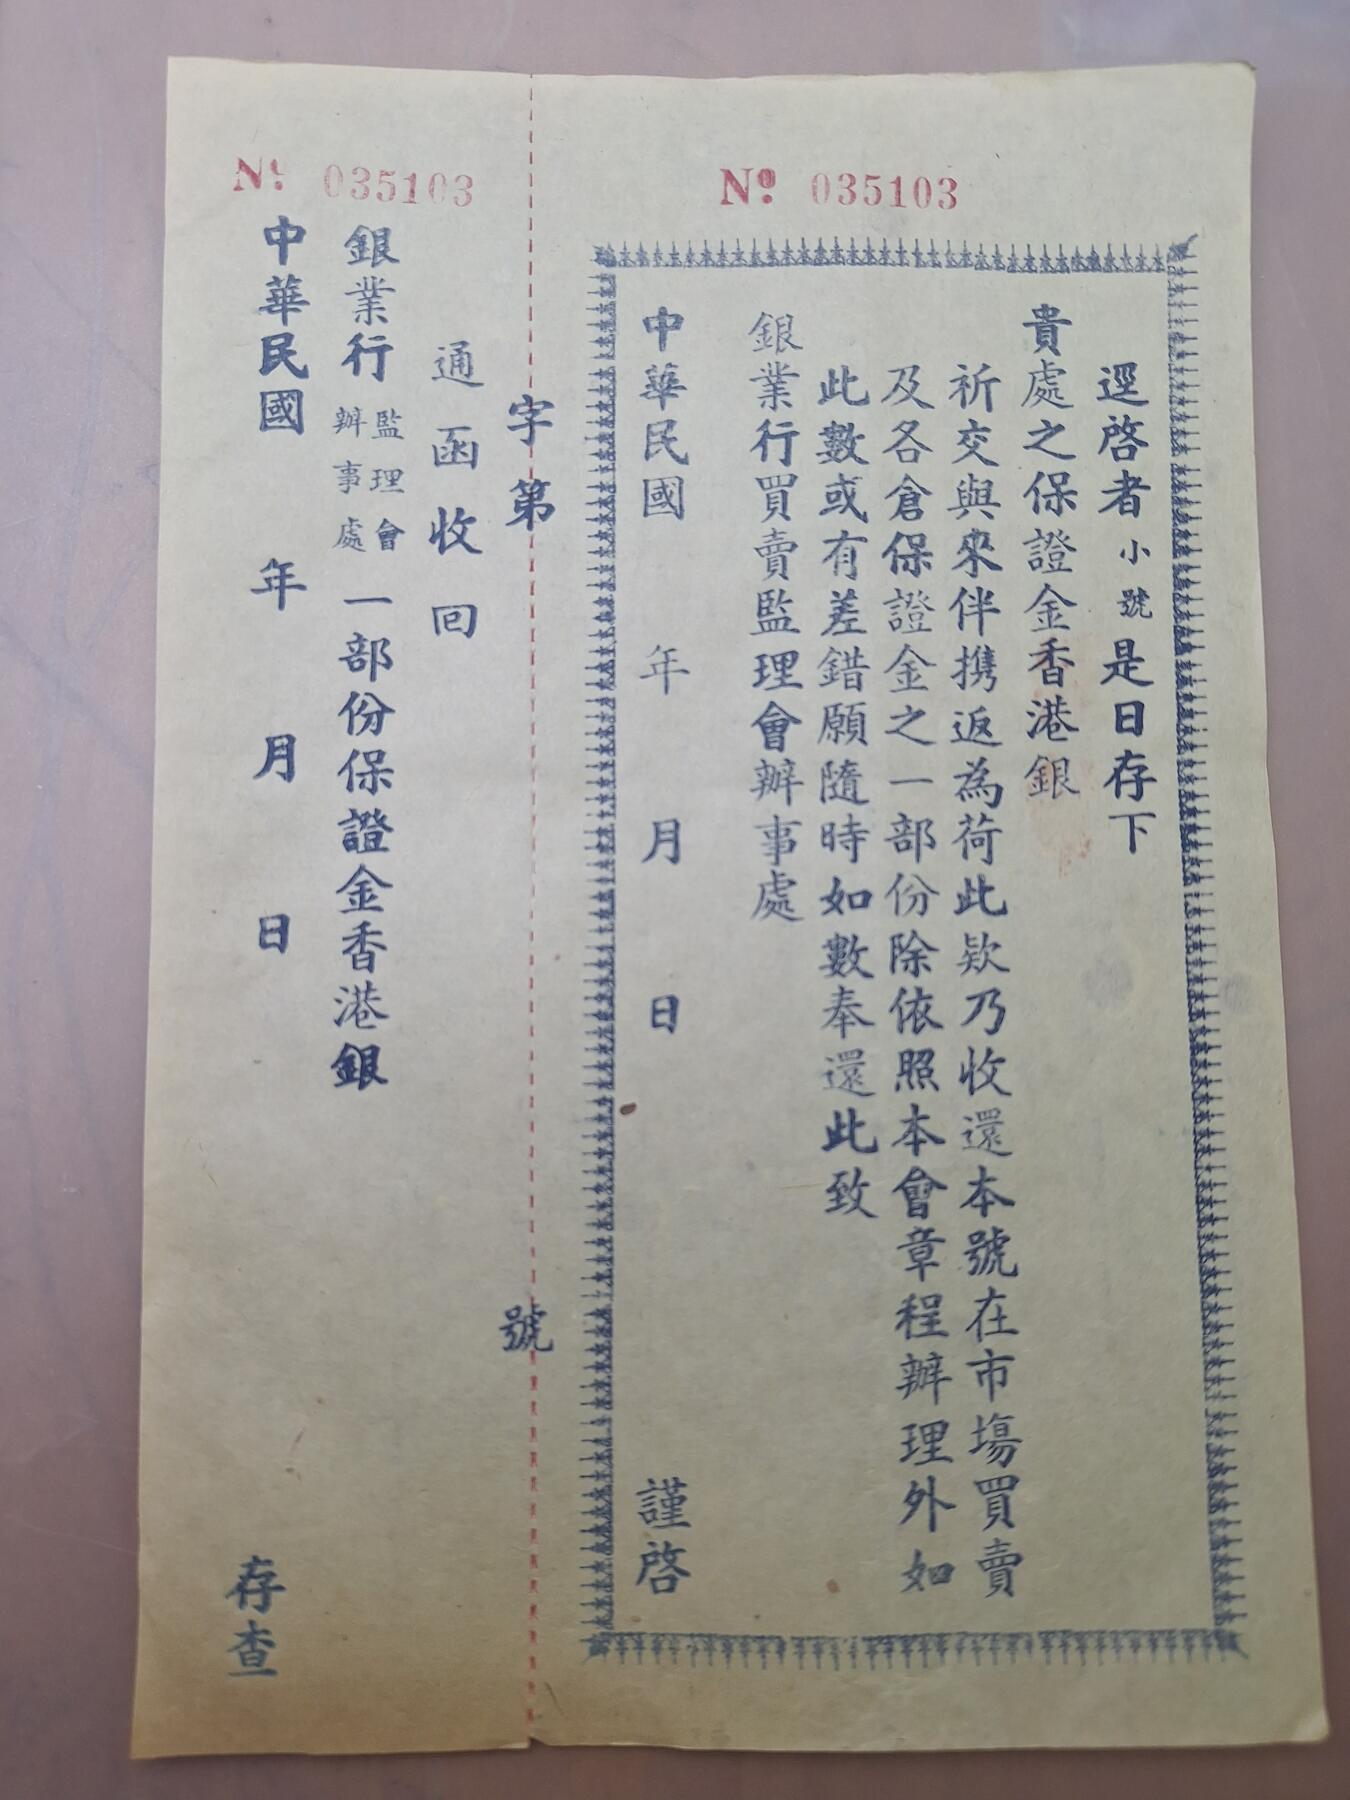 Nº 035103
逕啓者小號是日存下
貴處之保證金香港銀
祈交與來伴携返為荷此欵乃收還本號在市塲買賣
及各倉保證金之一部份除依照本會章程辦理外如
此數或有差錯願隨時如數奉還此致
銀業行買賣監理會辦事處
中華民國 年 月 日 謹啓
字第 號
Nº 035103
通函收回
銀業行監理會辦事處一部份保證金香港銀
中華民國 年 月 日
存查